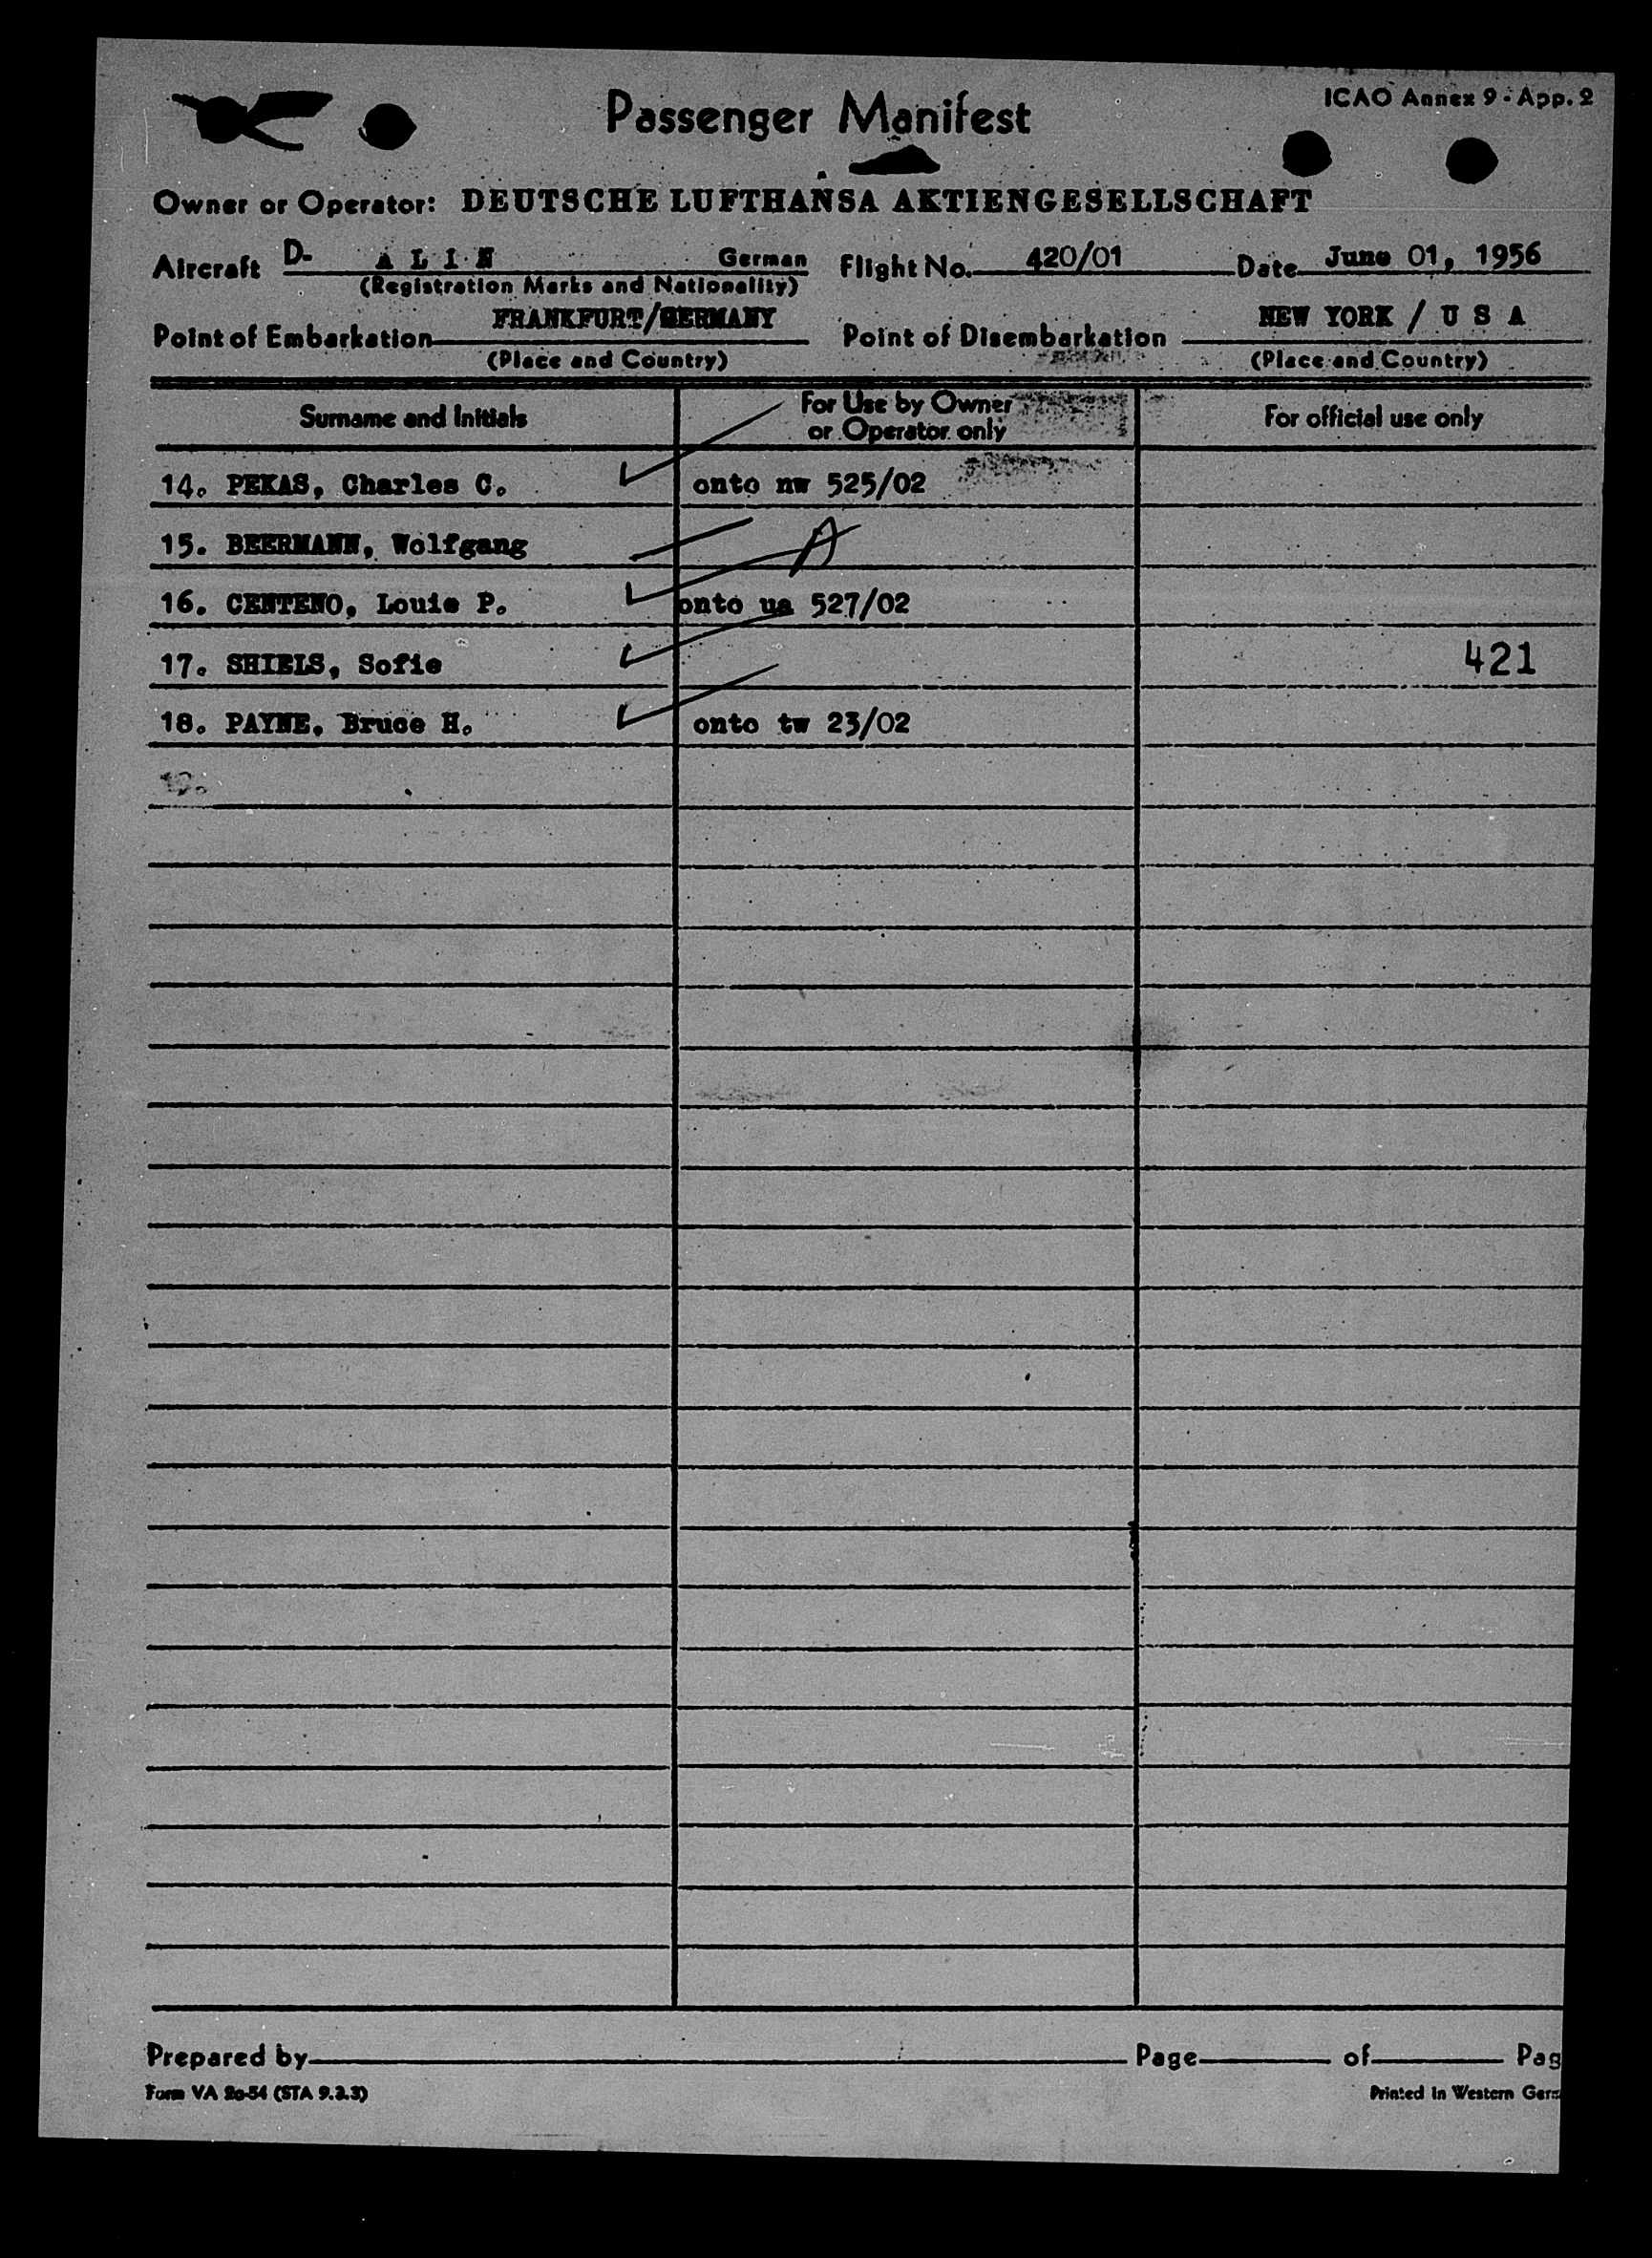 Passenger Manifest
ICAO Annex 9 - App. 2
Owner or Operator: DEUTSCHE LUFTHANSA AKTIENGESELLSCHAFT
Aircraft D- A L I N German Flight No. 420/01 Date June 01, 1956
(Registration Marks and Nationality)
Point of Embarkation FRANKFURT/GERMANY Point of Disembarkation NEW YORK / U S A
(Place and Country) (Place and Country)
Surname and Initials For Use by Owner or Operator only For official use only
14. PEKAS, Charles C. onto nw 525/02
15. BEERMANN, Wolfgang A
16. CENTENO, Louis P. onto ua 527/02
17. SHIELS, Sofie 421
18. PAYNE, Bruce H. onto tw 23/02
Prepared by Page of Pag
Form VA 20-54 (STA 9.2.3)
Printed in Western Ger